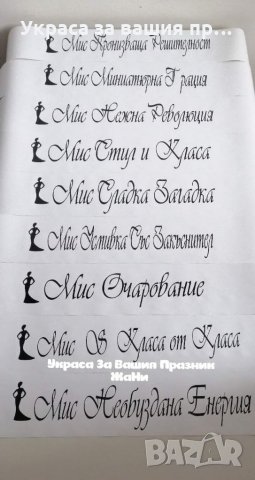 Украса за вашия пр...
Мис Кронизваща Решителност
Мис Миниатюрна Грация
Мис Нежна Революция
Мис Стил и Класа
Мис Сладка Загадка
Мис Усмивка Със Закъснител
Мис Очарование
Мис S Класа от Класа
Украса За Вашия Празник
ЖаНи
Мис Необуздана Енергия
BAZAR